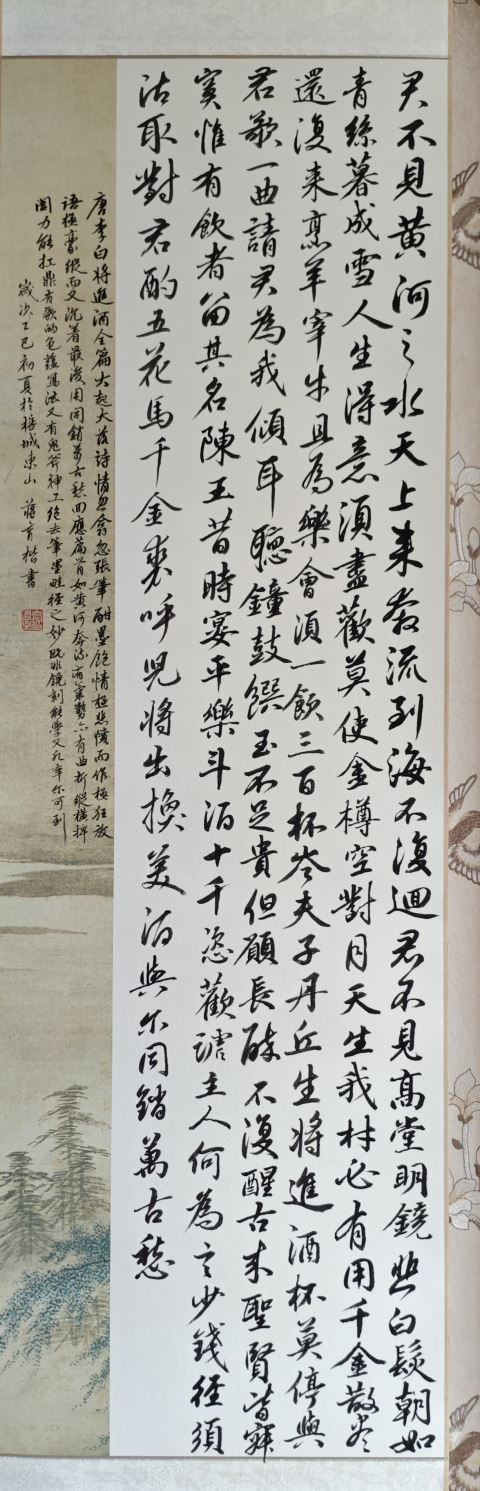 君不見黃河之水天上来奔流到海不復迴君不見高堂明鏡悲白髮朝如
青絲暮成雪人生得意須盡歡莫使金樽空對月天生我材必有用千金散尽
還復来烹羊宰牛且為樂會須一飲三百杯岑夫子丹丘生將進酒杯莫停與
君歌一曲請君為我傾耳聽鐘鼓饌玉不足貴但願長醉不復醒古来聖賢皆寂
寞惟有飲者留其名陳王昔時宴平樂斗酒十千恣歡謔主人何為言少錢徑須
沽取對君酌五花馬千金裘呼兒將出換美酒與尔同銷萬古愁
唐李白將進酒全篇大起大落詩情忽翕忽張筆酣墨飽情極悲憤而作極狂放
語極豪縱而又沉着最後用同銷萬古愁回應篇首如黃河奔流有氣勢亦有曲折縱橫捭
闔力能扛鼎有歌的包蘊寫法又有鬼斧神工絕去筆墨畦徑之妙既非鏤刻能學又凡率尔可到
歲次乙巳初夏於榕城東山 蔣育楷書